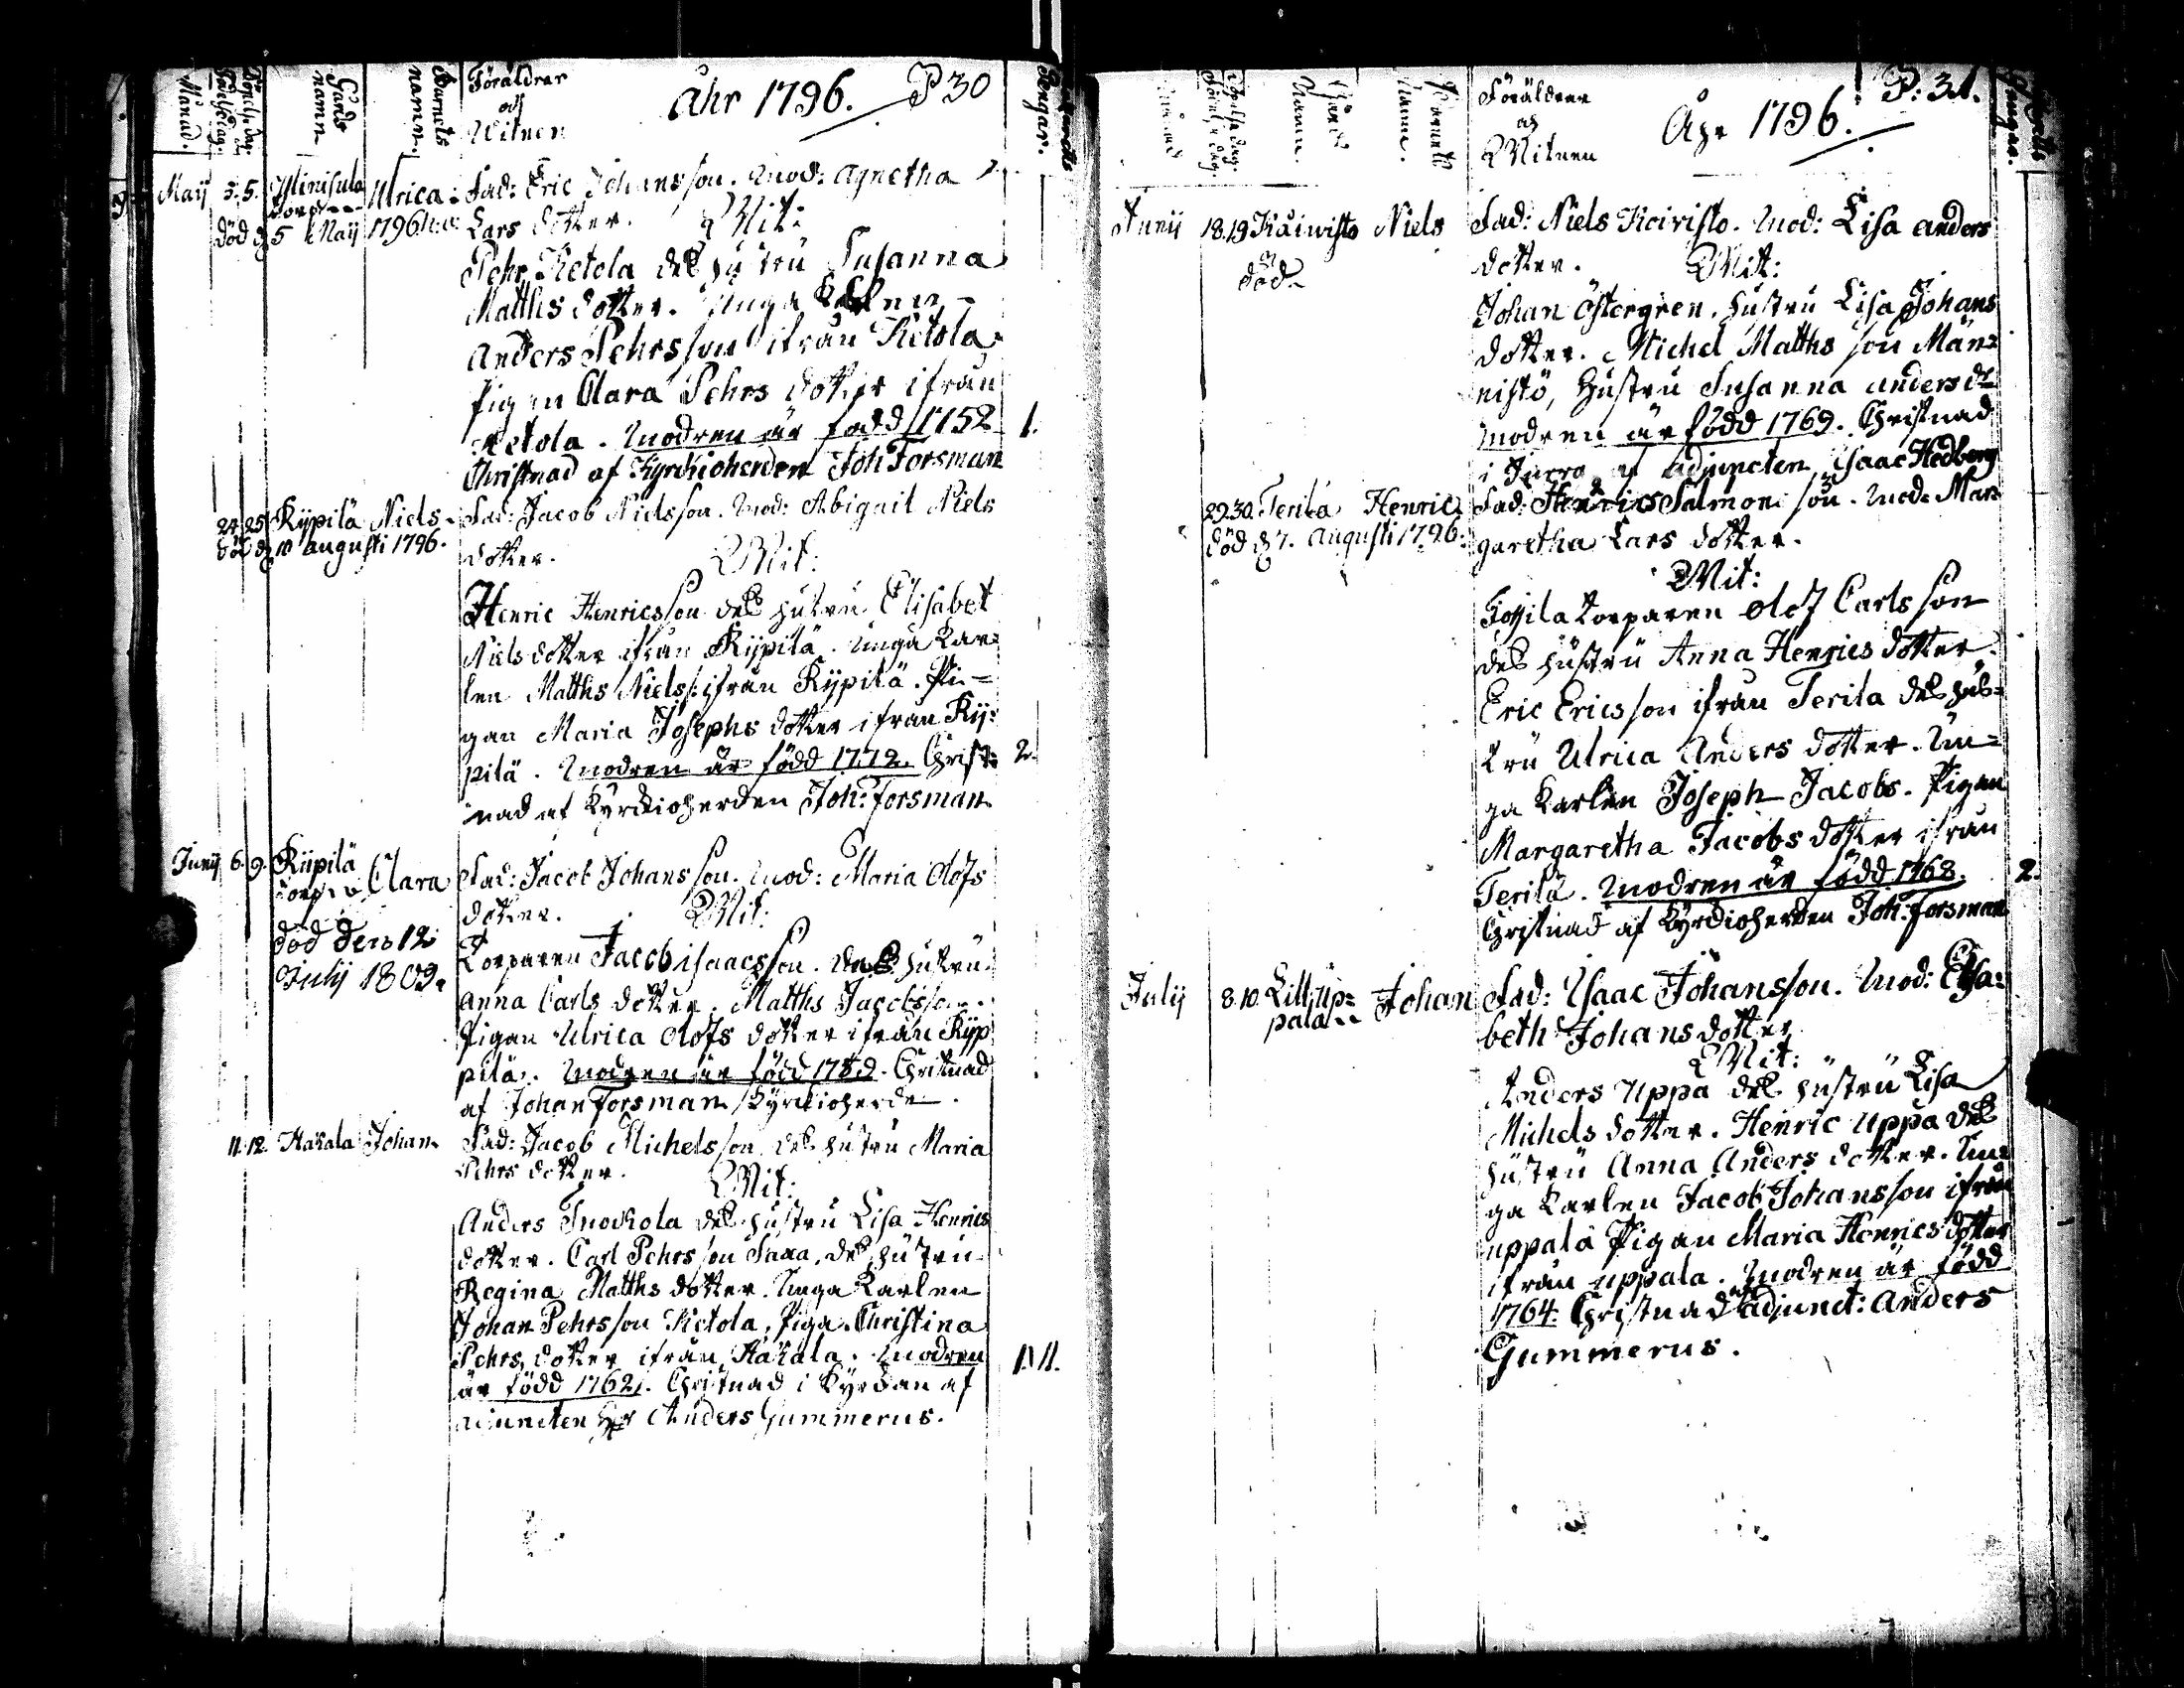 Månad.
Födelsedag.
Döpelse dag.
Gårds
namn
Barnets
namn.
Föräldrar
och
Witnen
Åhr 1796. P 30
Pengar.
Maij 3. 5. Ylinisula Ulrica. Fad: Eric Johansson. Mod: Agnetha
torp
död d 5 Maij 1796 Lars dotter. Wit:
Pehr Ketola des hustru Susanna
Matths dotter. Unga
Anders Pehrsson ifrån Ketola
Pigan Clara Pehrs dotter ifrån
Ketola. Modren är född 1752 1.
Christnad af Kyrckioherden Joh: Forsman
24. 25. Kypilä Niels. Fad: Jacob Nielsson. Mod: Abigail Niels
död d 10 augusti 1796. dotter. Wit:
Henric Henricsson des hustru Elisabet
Niels dotter ifrån Kypilä. Unga Kar=
len Matths Niels: ifrån Kypilä. Pi=
gan Maria Josephs dotter ifrån Ky=
pilä. Modren är född 1772. Christ= 2.
nad af Kyrckioherden Joh: Forsman
Junij 6. 9. Kypilä
torp Clara Fad: Jacob Johansson. Mod: Maria Olofs
dotter. Wit:
död den 12
Julij 1809.
Torparen Jacob Isaacsson. des hustru
Anna Carls dotter. Matths Jacobsson.
Pigan Ulrica Olofs dotter ifrån Kyp
pilä. Modren är född Christnad
af Johan Forsman Kyrckioherde.
11. 12. Hakala Johan Fad: Jacob Michelsson des hustru Maria
Pehrs dotter. Wit:
Anders des hustru Lisa Henrics
dotter. Carl Pehrsson des hustru
Regina Matths dotter. Unga Karlen
Johan Pehrsson Ketola, Piga Christina
Pehrs dotter ifrån Hakala. Modren
är född 1762. Christnad i Kyrckan af
adjuncten Hr Anders Gummerus.
Födelse dag.
Döpelse dag.
Gårds
Namn.
Barnets
Namn.
Föräldrar
och
Witnen
Åhr 1796. P: 31.
Pengar.
Junij 18. 19 Kåiwisto Niels Fad: Niels Koivisto. Mod: Lisa anders
död
dotter. Wit:
Johan Östergren. hustru Lisa Johans
dotter. Michel Matths son Män=
nistö, hustru Susanna anders dr
Modren är född 1769. Christnad
i af adjuncten Isaac Hedberg
29. 30. Terila Henric Fad: Henrics Salmons son. Mod: Mar
död d 7. Augusti 1796. garetha Lars dotter.
Wit:
torparen Olof Carls son
des hustru Anna Henrics dotter.
Eric Ericsson ifrån Terila des hus=
tru Ulrica Anders dotter. Un=
ga Karlen Joseph Jacobs. Pigan
Margaretha Jacobs dotter ifrån
Terilä. Modren är född 1768. 2.
Christnad af Kyrckioherden Joh: Forsman
Julij 8. 10. Lill Up=
pala Johan Fad: Isaac Johansson. Mod: Elisa=
beth Johans dotter
Wit:
Anders Uppa des hustru Lisa
Michels dotter. Henric Uppa des
hustru Anna Anders dotter. Un=
ga Karlen Jacob Johansson ifrån
uppala Pigan Maria Henrics dotter
ifrån uppala. Modren är född
1764. Christnad af adjunct: Anders
Gummerus.